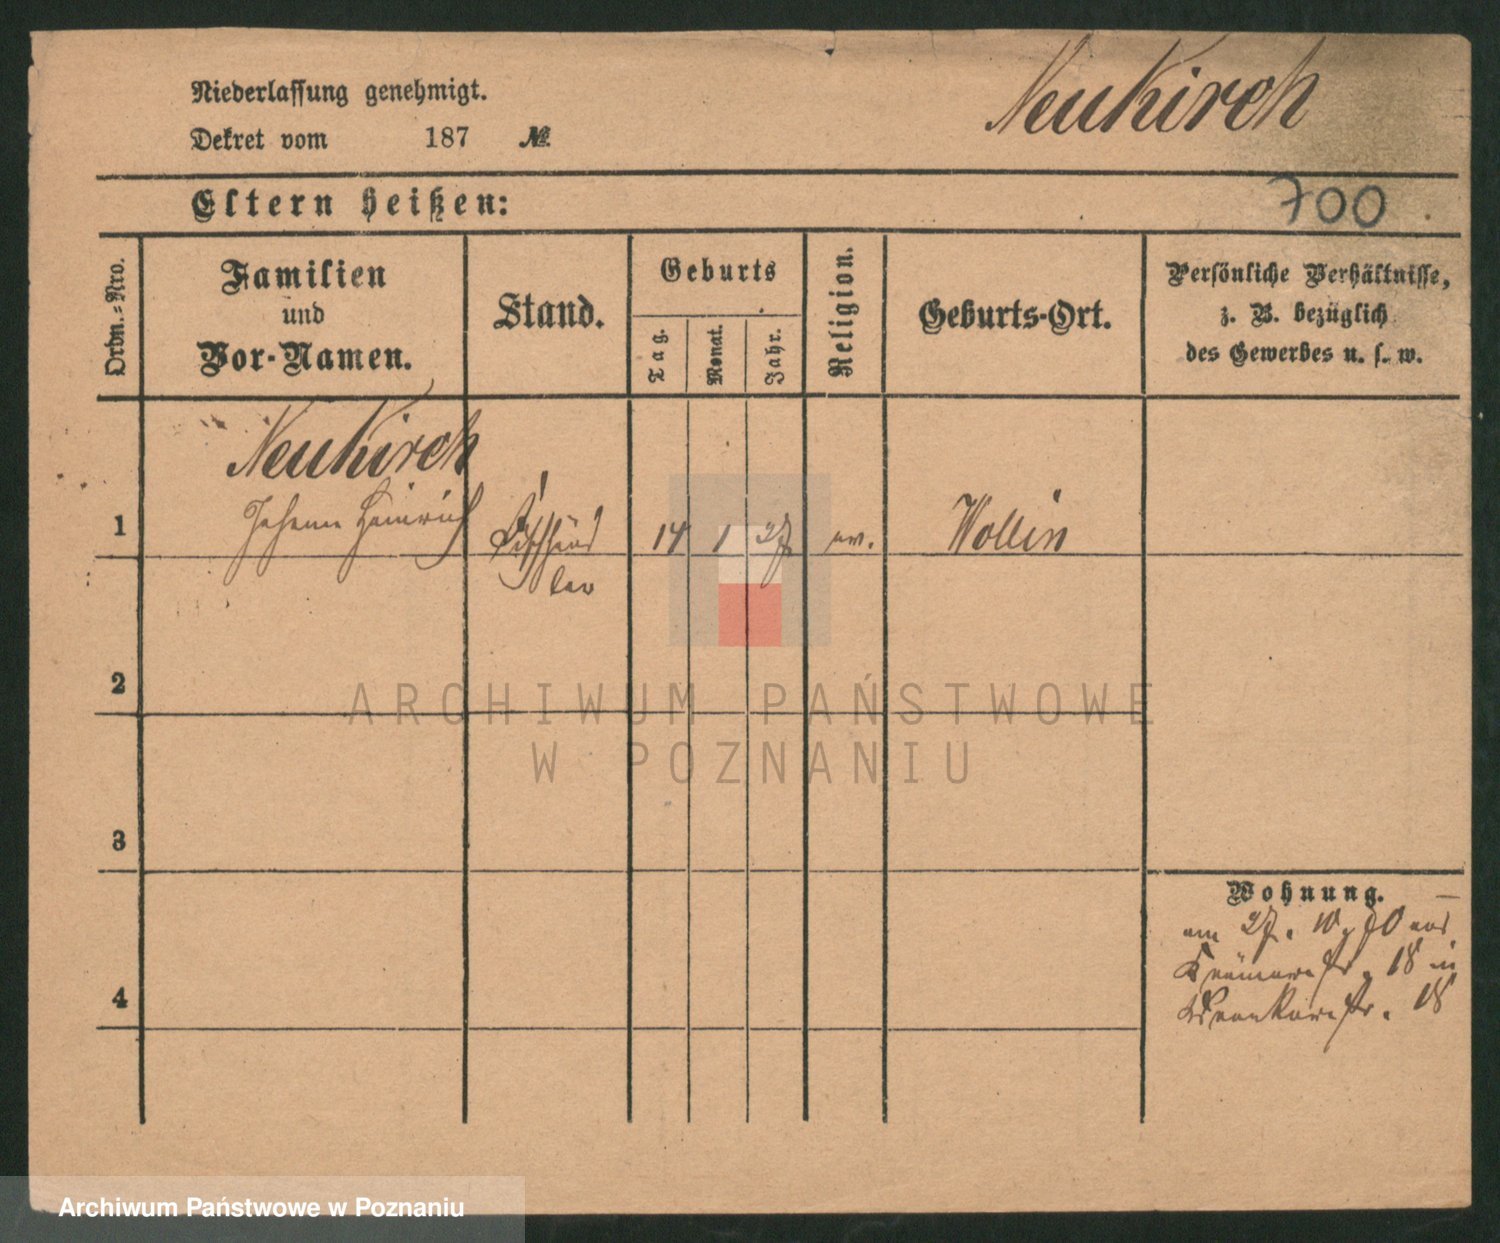 Neukirch
Niederlassung genehmigt.
Dekret vom 187 №
Eltern heißen:
700
Ordn.-Nro.
Familien
und
Vor-Namen.
Stand.
Geburts
Tag.
Monat.
Jahr.
Religion.
Geburts-Ort.
Persönliche Verhältnisse,
z. B. bezüglich
des Gewerbes u. s. w.
Neukirch
1 Johann Heinrich Fischhänd 14 1 27 ev. Wollin
ler
2
ARCHIWUM PAŃSTWOWE
W POZNANIU
3
Wohnung.
am 27. 10. 70 aus
str. 18 in
str. 18
4
Archiwum Państwowe w Poznaniu